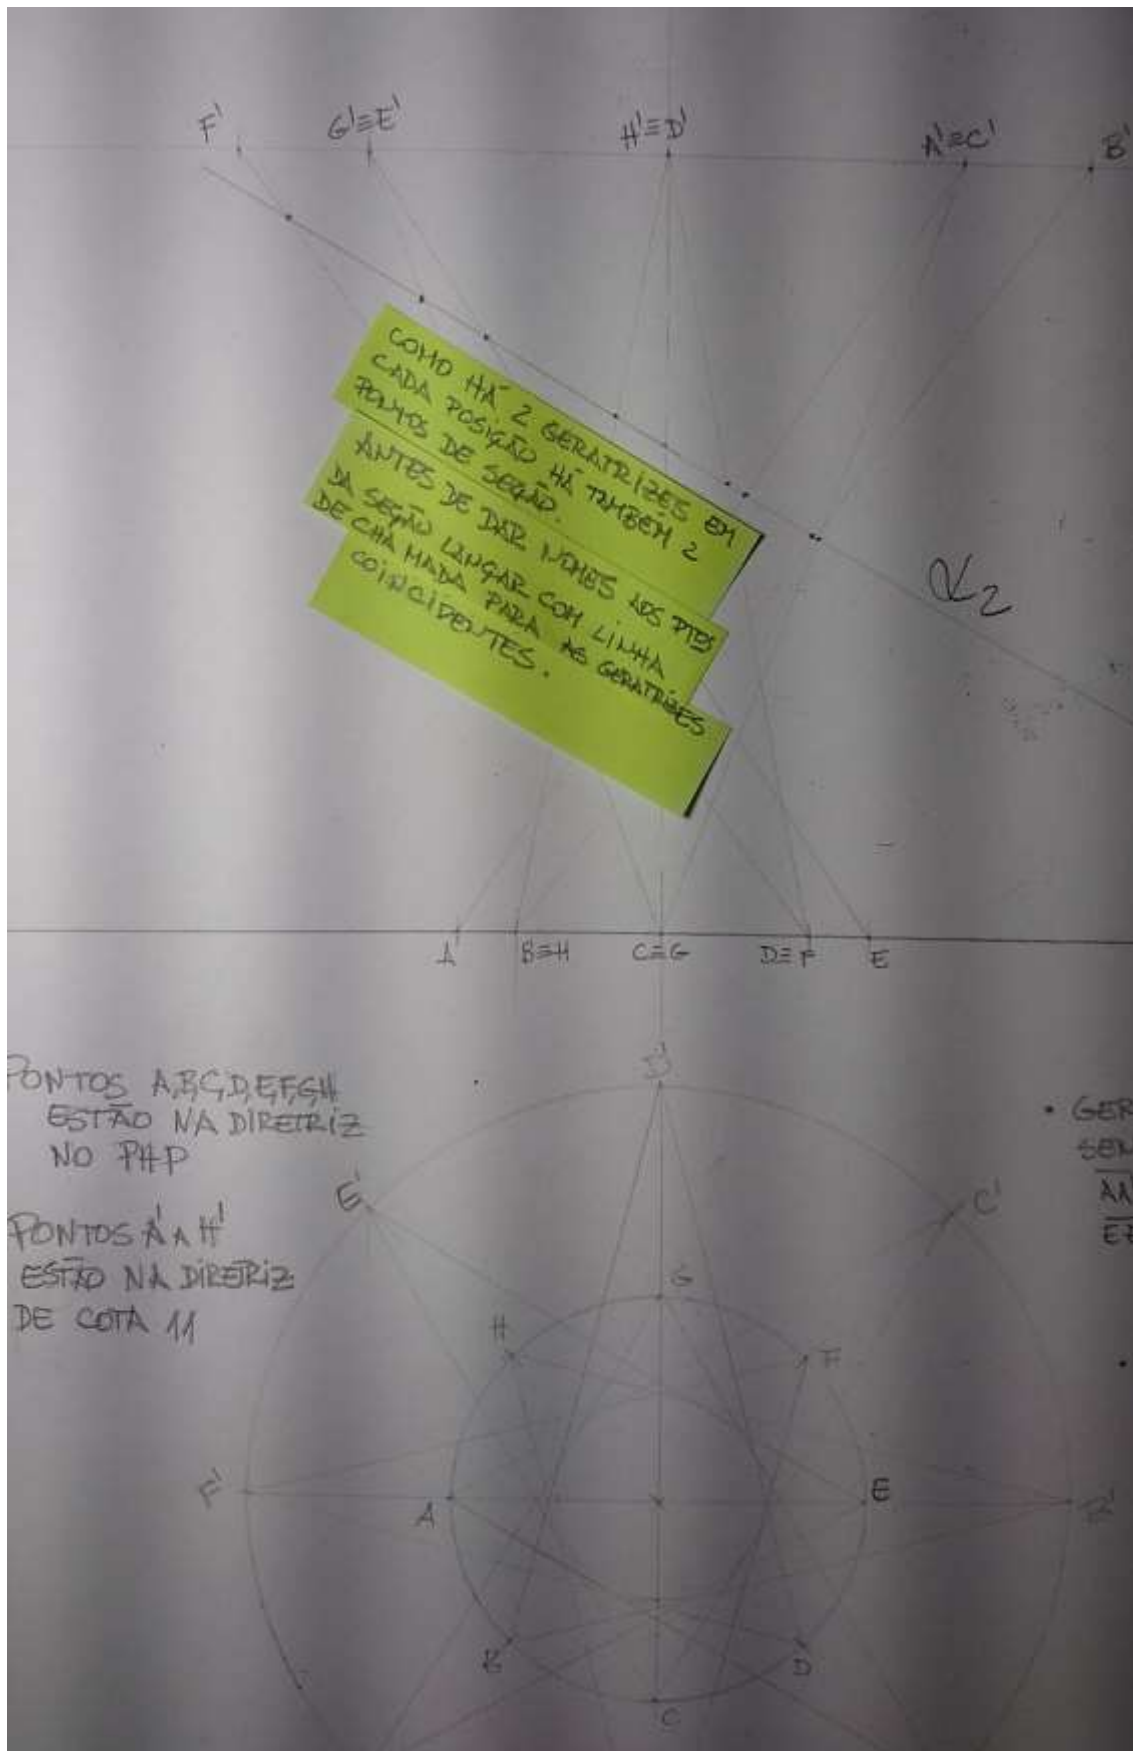 F' G'≡E' H'≡D' A'≡C' B'
COMO HÁ 2 GERATRIZES EM
CADA POSIÇÃO HÁ TAMBÉM 2
PONTOS DE SEÇÃO.
ANTES DE DAR NOMES AOS PTOS
DA SEÇÃO LANÇAR COM LINHA
DE CHAMADA PARA AS GERATRIZES
COINCIDENTES.
α2
A B≡H C≡G D≡F E
PONTOS A,B,C,D,E,F,G,H
ESTÃO NA DIRETRIZ
NO PHP
PONTOS A' A H'
ESTÃO NA DIRETRIZ
DE COTA 11
• GER
SEN
AA'
D'
E' C'
G
H F
F' A E
B D
C